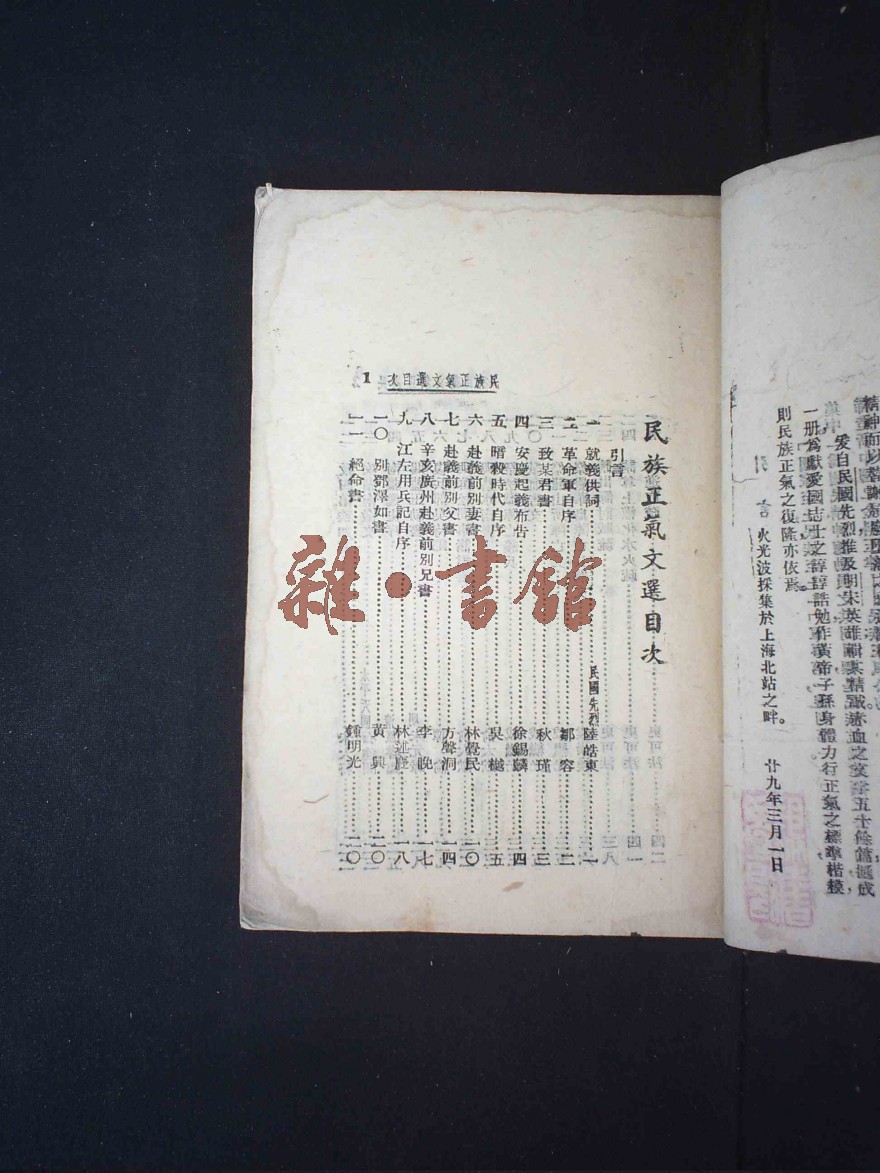 爰自民國先烈推及明宋英雄輯其精誠瀝血之文計五十餘篇彙成
一册爲獻愛國志士之諄諄誥勉作黃帝子孫身體力行正氣之標準楷模
則民族正氣之復隆亦依焉
引言 火光波採集於上海北站之畔。 廿九年三月一日
民族正氣文選目次
引言
一 就義供詞 民國先烈陸皓東 一
二 革命軍自序 鄒容 二
三 致某君書 秋瑾 三
四 安慶起義布告 徐錫麟 四
五 暗殺時代自序 吳樾 五
六 赴義前別妻書 林覺民 一〇
七 赴義前別父書 方聲洞 一四
八 辛亥廣州赴義前別兄書 李晚 一七
九 江左用兵記自序 林述慶 一八
一〇 別鄧澤如書 黃興 二〇
一一 絕命書 鍾明光 二〇
民族正氣文選目次 1
雜·書館